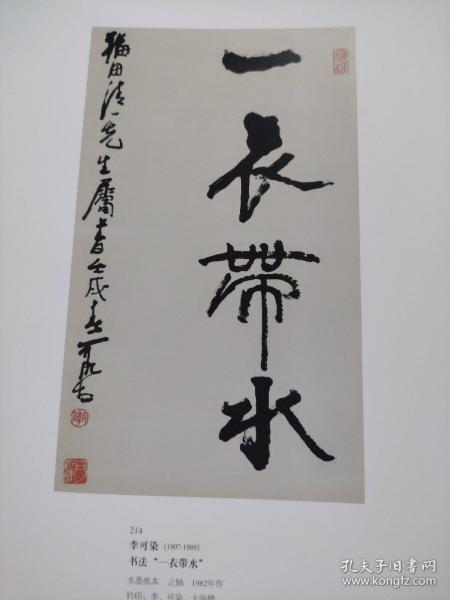 一衣帶水
福田清一先生屬書壬戌春可染
214
李可染 (1907-1989)
书法“一衣带水”
水墨纸本 立轴 1982年作
钤印：李、可染
孔夫子旧书网